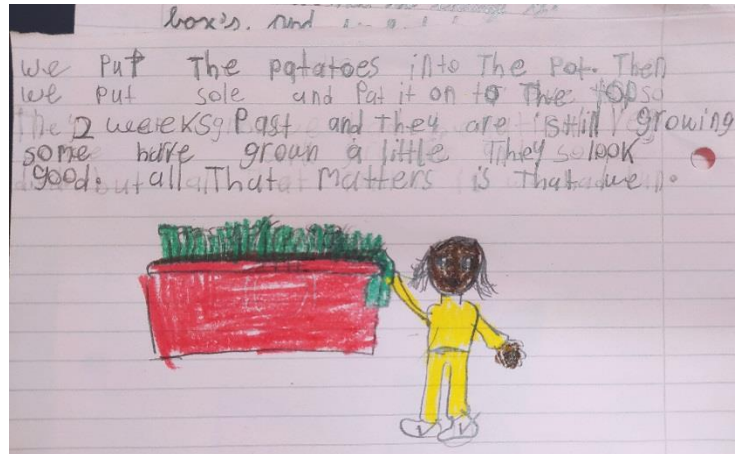 box's. And
We Put The potatoes into The Pot. Then
we put sole and Pat it on to The top
The 2 weeks Past and they are still growing
some have grown a little They look
good. all That Matters is That we